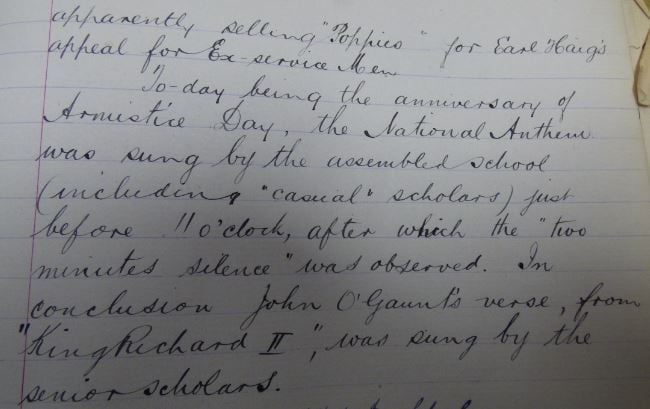 apparently selling "Poppies" for Earl Haig's
appeal for Ex-service Men
To-day being the anniversary of
Armistice Day, the National Anthem
was sung by the assembled school
(including "casual" scholars) just
before 11 o'clock, after which the "two
minutes silence" was observed. In
conclusion John O'Gaunt's verse, from
"King Richard II", was sung by the
senior scholars.